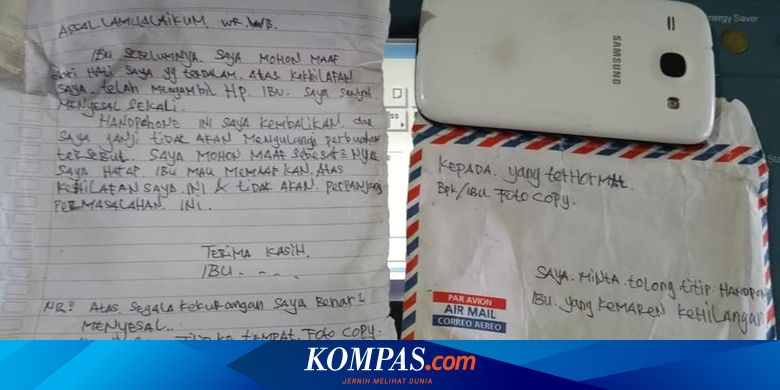 ASSALLAMUALAIKUM WR. WB.
IBU SEBELUMNYA. SAYA MOHON MAAF
dari HATI SAYA yg terDALAM. ATAS KEKHILAFAN
SAYA. telah MENGAMBIL Hp. IBU. SAYA sangat
MENYESAL SEKALI.
HANDPHONE INI SAYA KEMBALIKAN. dan
SAYA JANJI tidAK AKAN MENGULANGI perbuatan
tersebut. SAYA MOHON MAAF sebesar2 NYA
SAYA HARAP. IBU MAU MEMAAFKAN. ATAS
KEKHILAFAN SAYA. INI & tidAK AKAN. perpanjang
PERMASALAHAN INI.
TERIMA KASIH.
IBU. . . .
NB: ATAS. SEGALA KEKURANGAN SAYA BENAR2
MENYESAL.
KE TEMPAT. FOTO COPY.
SAMSUNG
Energy Saver
KEPADA. yang terHorMAt.
Bpk/IBU FOTO COPY.
SAYA. MINTA. tolong titip. HANDPHONE
IBU. yang KEMAREN KEHILANGAN
PAR AVION
AIR MAIL
CORREO AEREO
KOMPAS.com
JERNIH MELIHAT DUNIA